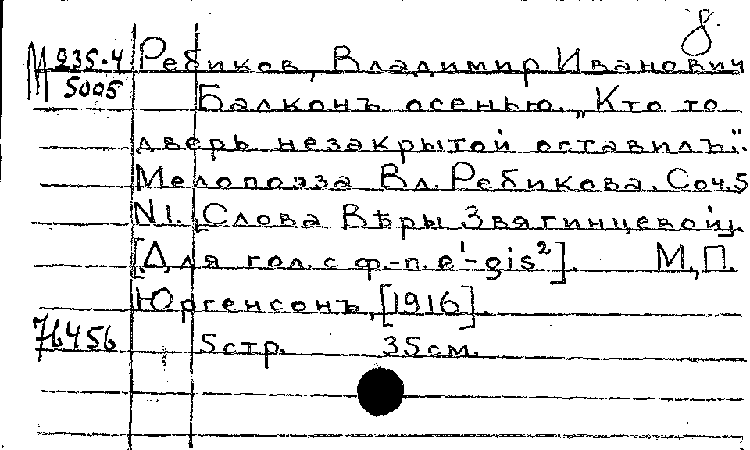 8.
М 935-4 Ребиков, Владимир Иванович
5005 Балконъ осенью. „Кто то
дверь незакрытой оставилъ".
Мелопоэза Вл. Ребикова. Соч. 5
N1. Слова Вѣры Звягинцевой.
[Для гол. с ф.-п. e¹-gis²]. М., П.
Юргенсонъ, [1916].
76456 5 стр. 35 см.